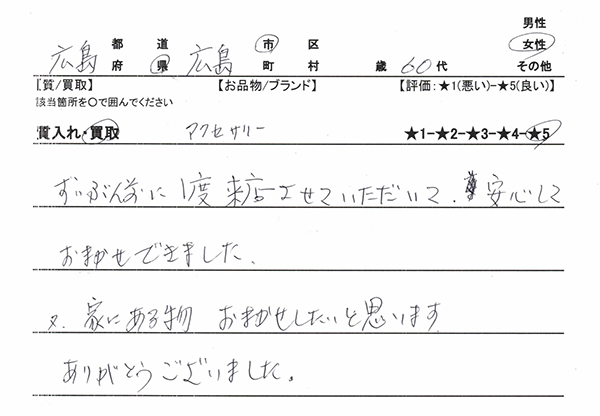 男性
広島 都 道 広島 市 区 女性
府 県 町 村 歳 60代 その他
【質/買取】 【お品物/ブランド】 【評価:★1(悪い)-★5(良い)】
該当箇所を○で囲んでください
質入れ・買取 アクセサリー ★1-★2-★3-★4-★5
ずいぶん前に 1度 来店させていただいて、安心して
おまかせできました。
又、家にある物 おまかせしたいと思います
ありがとうございました。